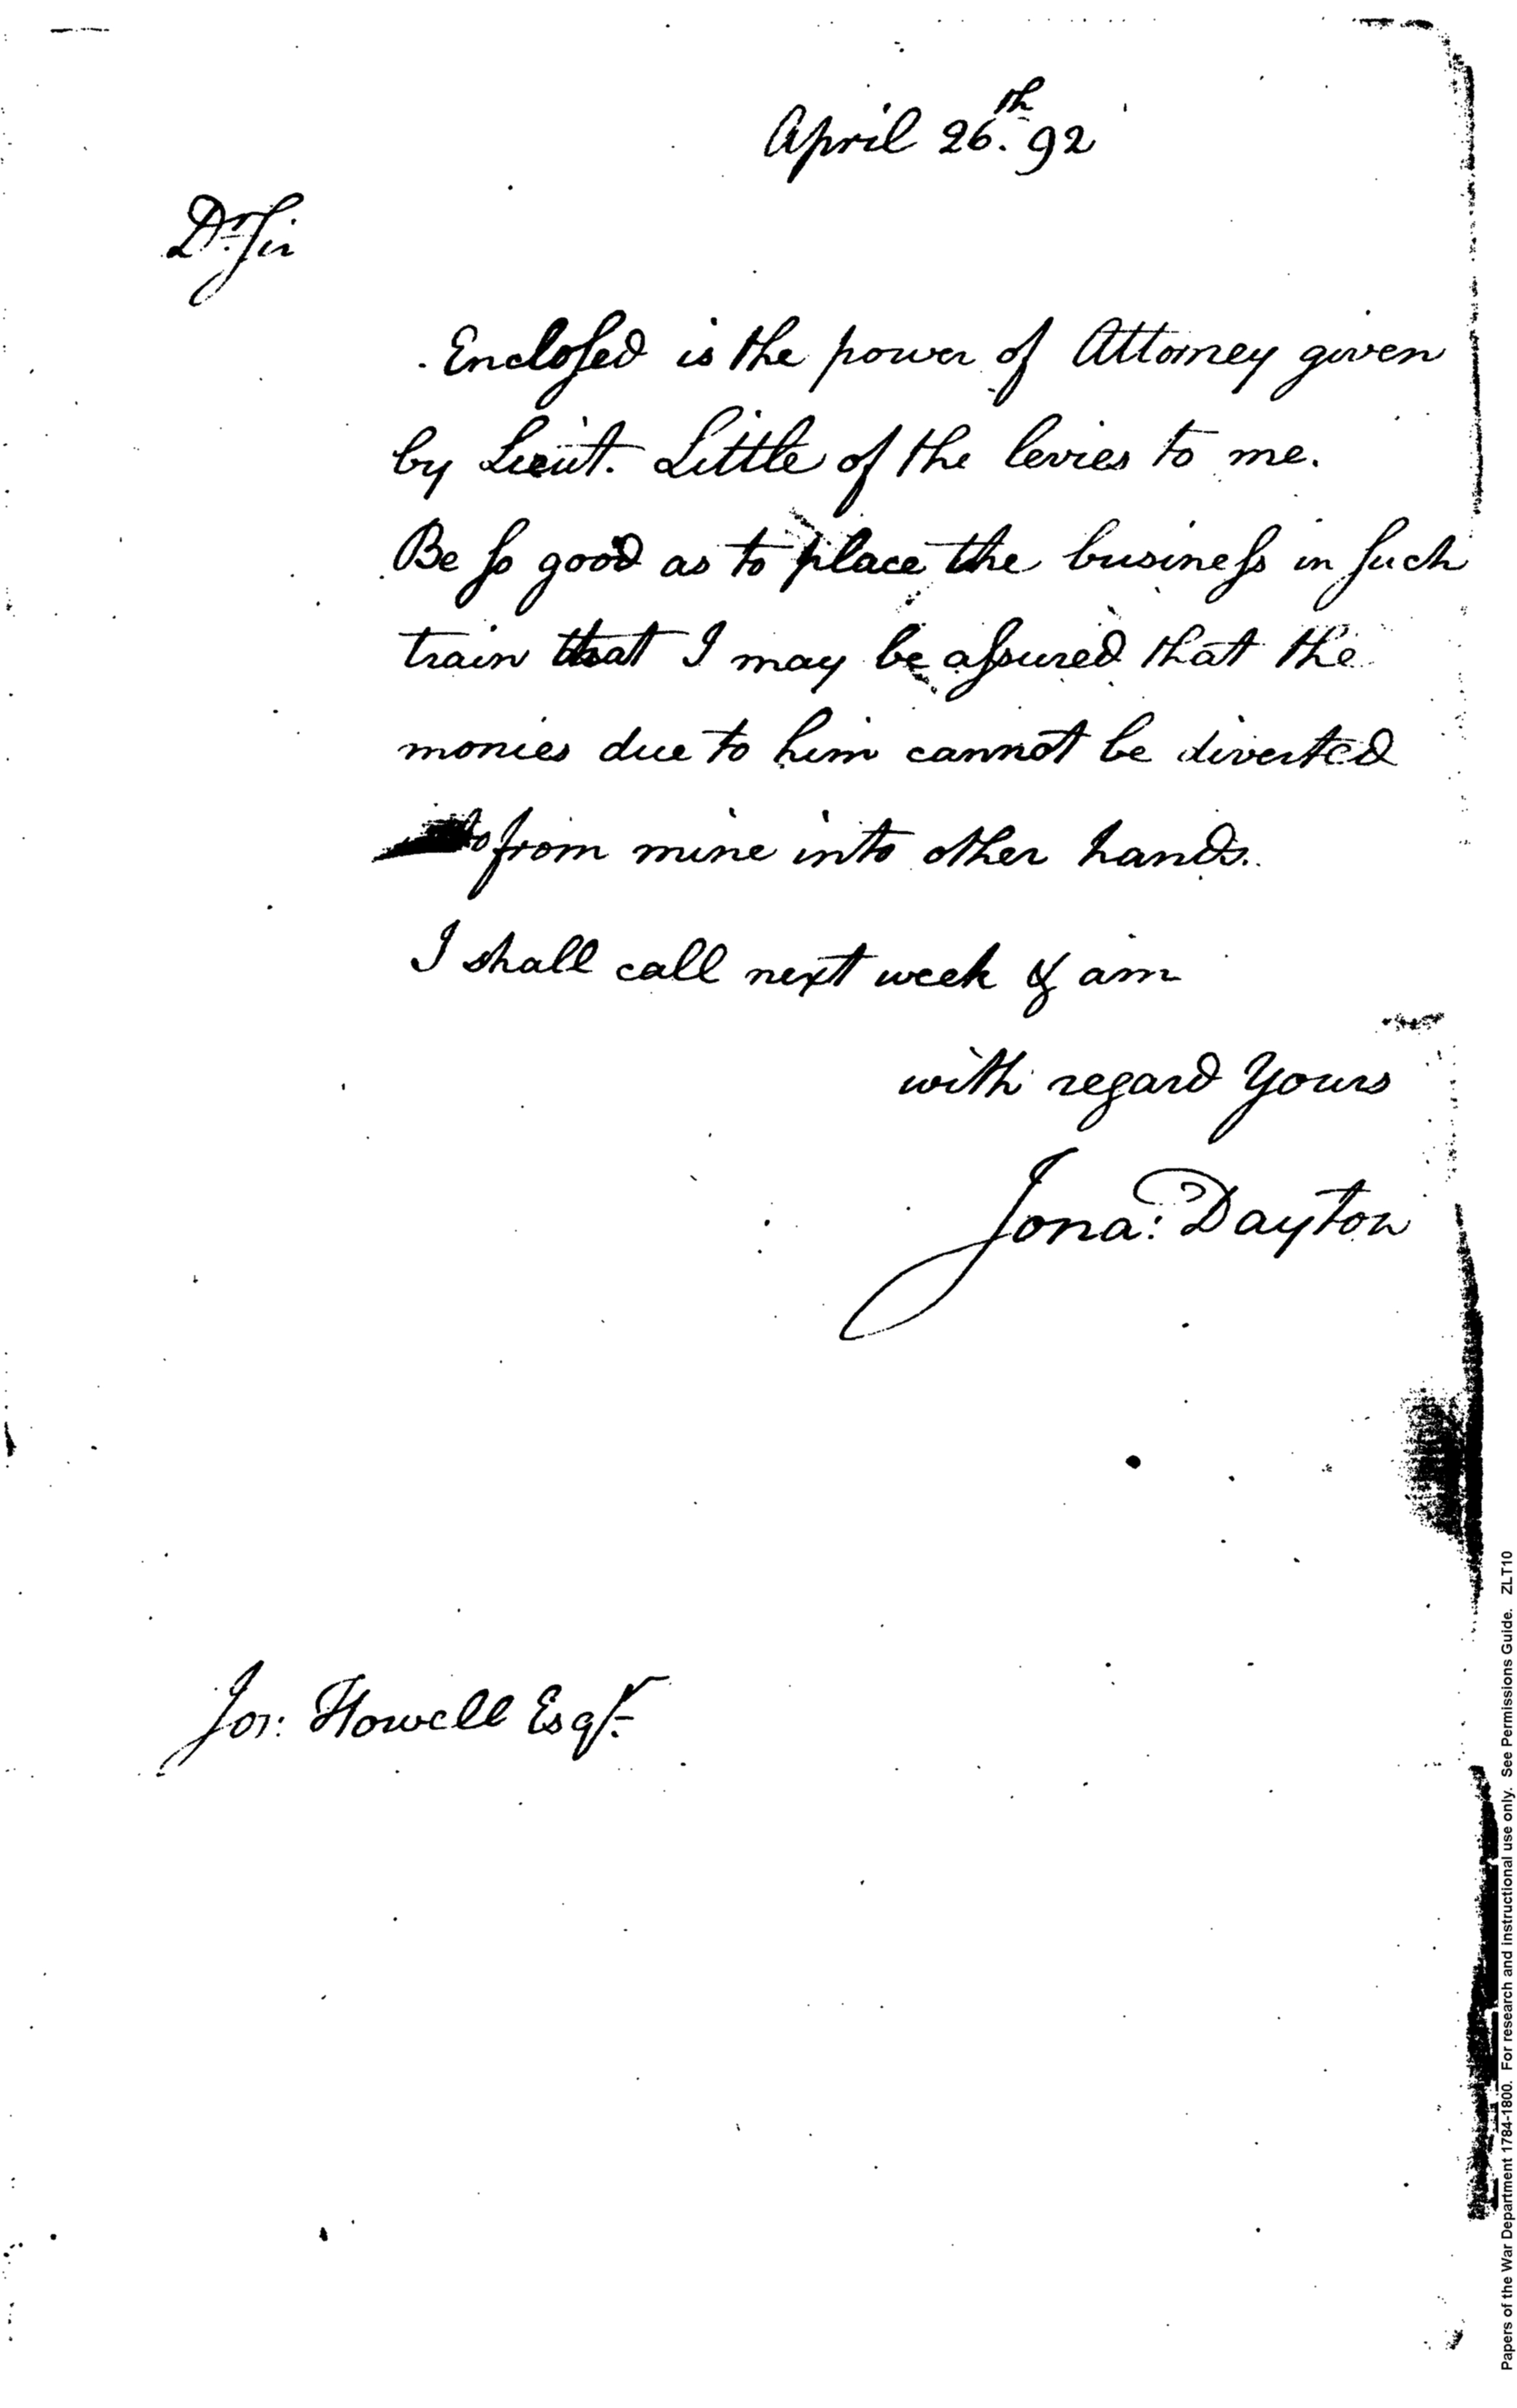 April 26.th 92
Dr. Sir
Encloſed is the power of Attorney given
by Lieut. Little of the levies to me.
Be ſo good as to place the buſineſs in ſuch
train that I may be aſsured that the
monies due to him cannot be diverted
from mine into other hands.
I shall call next week & am
with regard Yours
Jona: Dayton
Jos: Howell Esqr.
Papers of the War Department 1784-1800. For research and instructional use only. See Permissions Guide. ZLT10